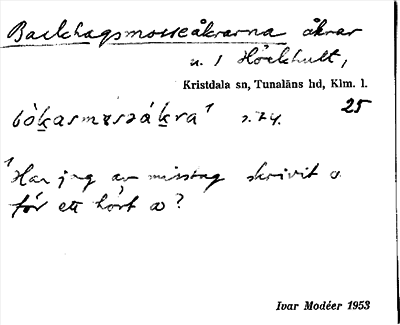 Backhagsmosseåkrarna åkrar
u. 1 Höckhult,
Kristdala sn, Tunaläns hd, Klm. l.
25
bòkasmɐsəákra¹ s. 24.
¹ Har jag av misstag skrivit o
för ett hört a?
Ivar Modéer 1953